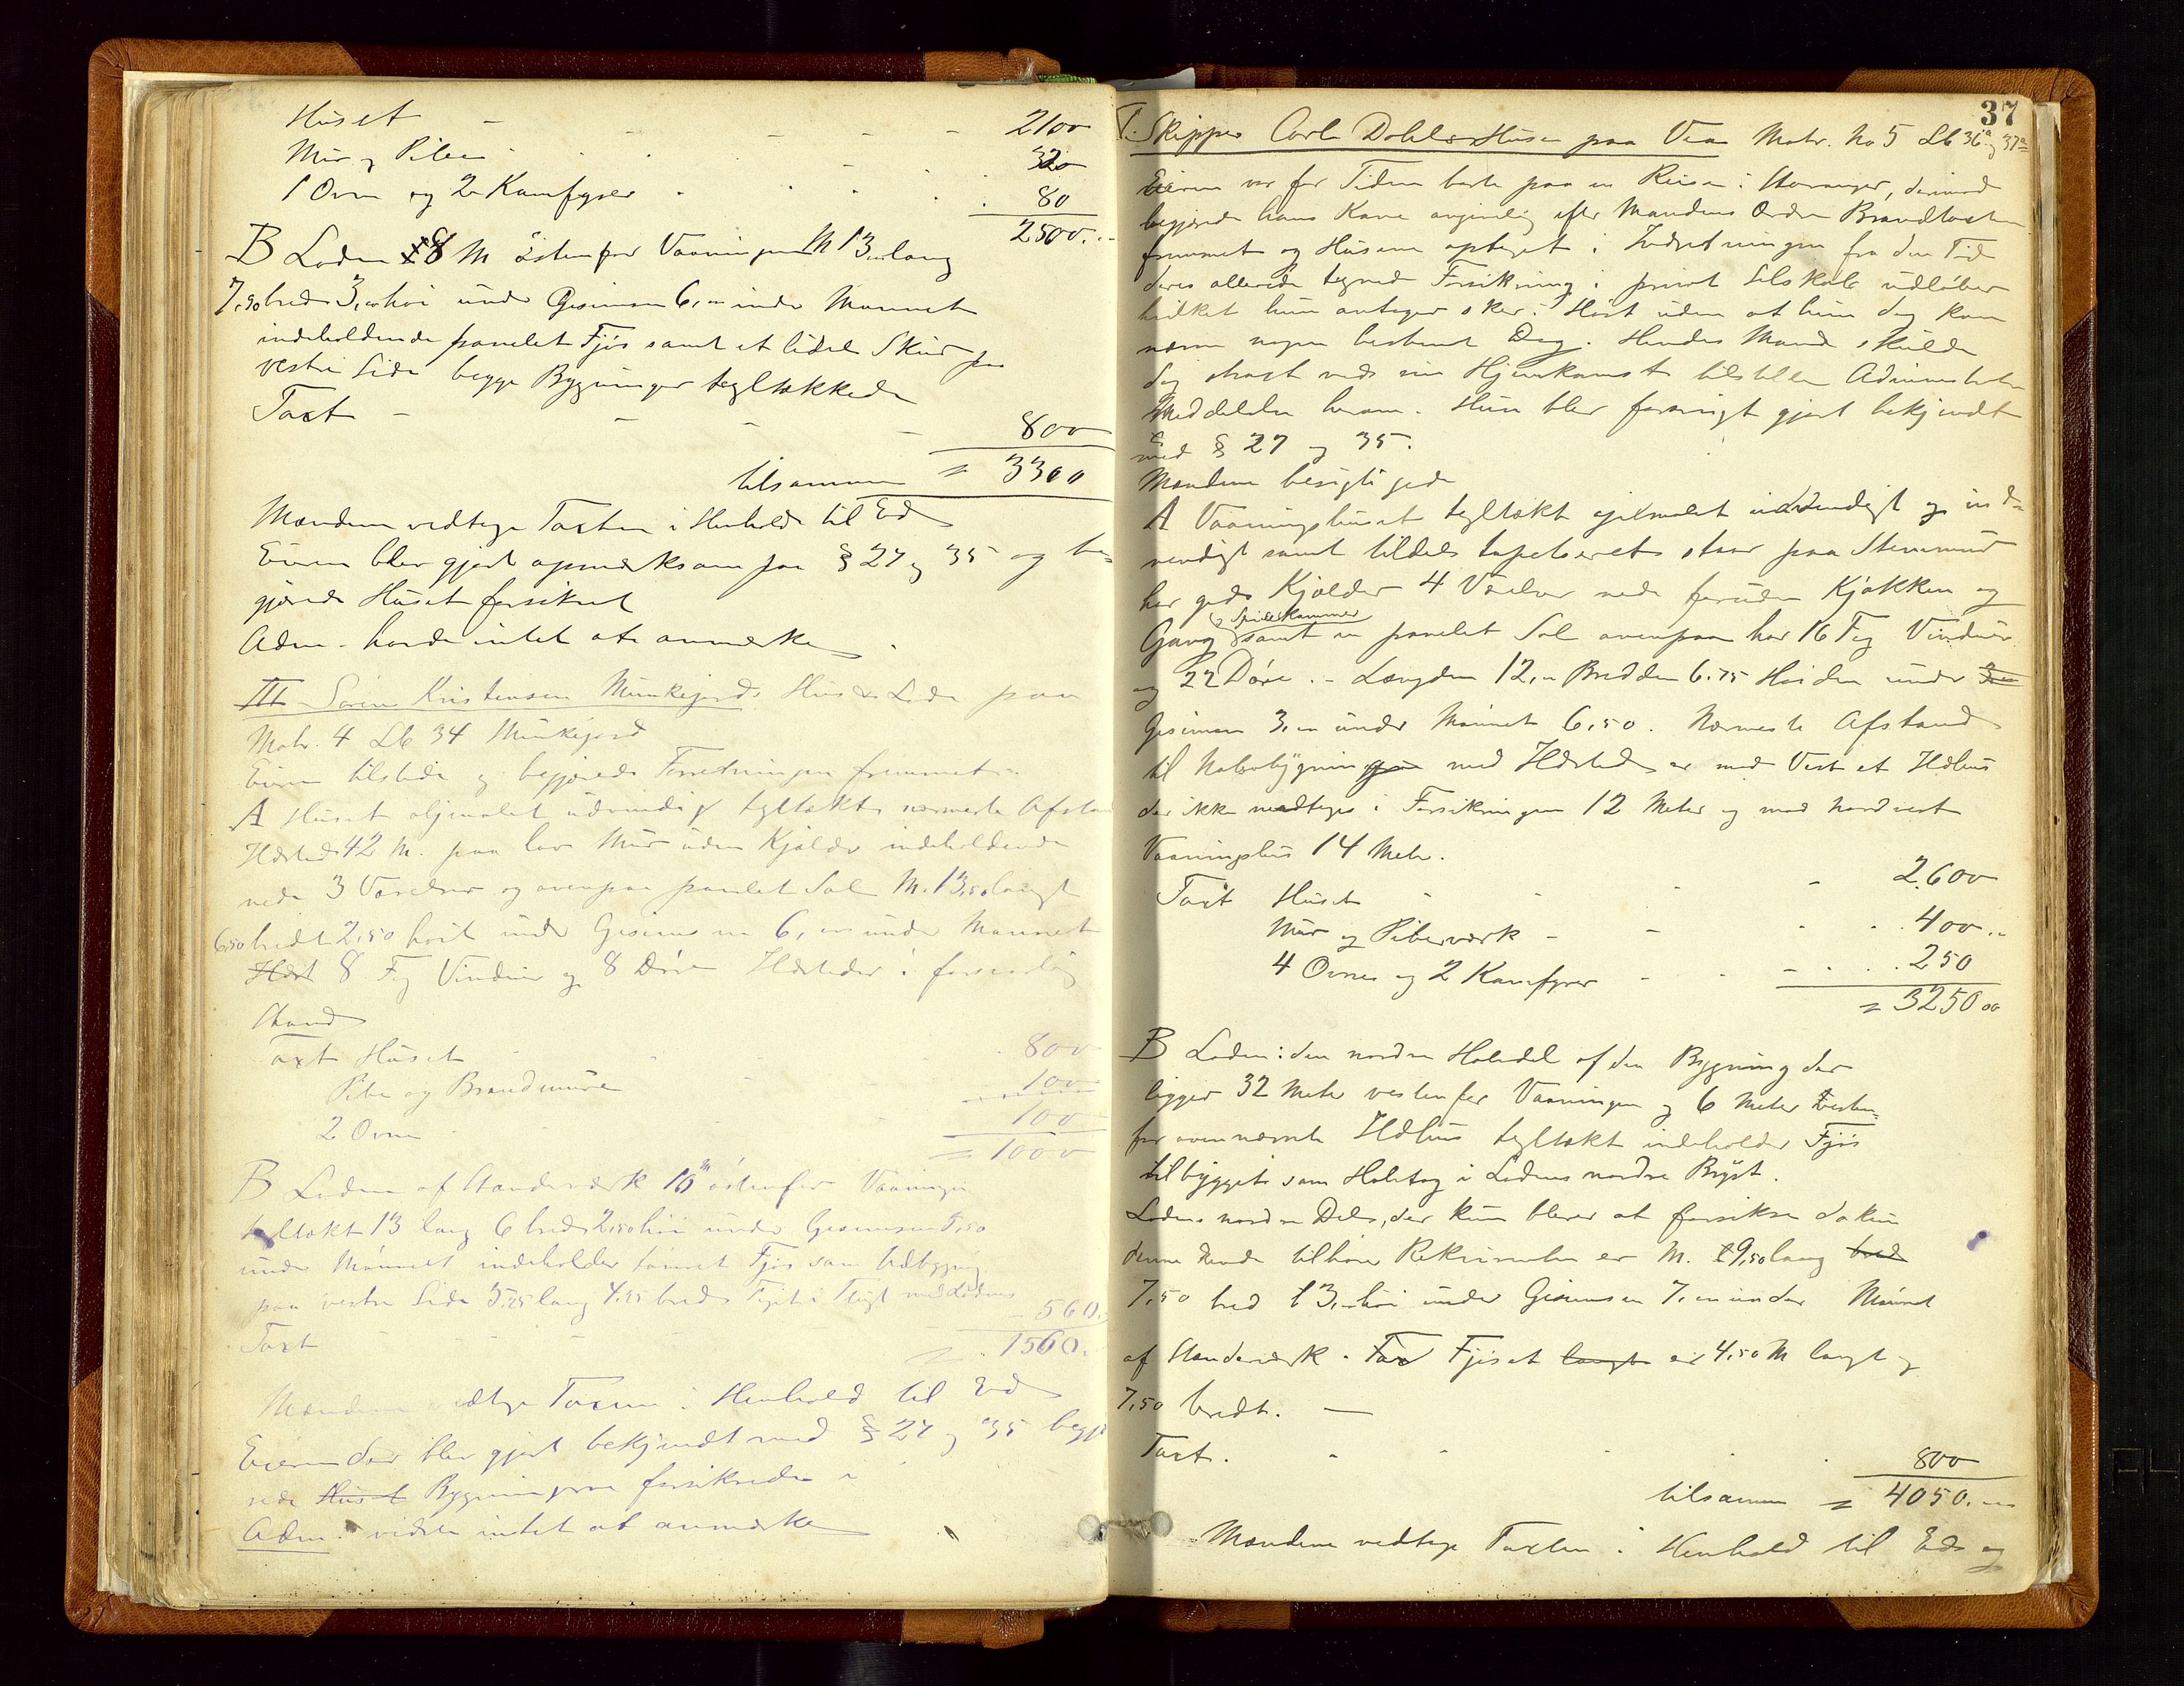 Huset - - - - 2100
Mur og Piber . . . - 320
1 Ovn og 2 Kamfyrer . . . . 80
2500..
B Laden 8 M östenfor Vaaningen M 13,00 lang
7,50 bred 3,00 høi under Gesimsen 6,00 under Mønnet
indeholdende panelet Fjøs samt et lidet Skur paa
vestre Side begge Bygninger tegltækkede
Taxt - - - - 800
tilsammen = 3300
Mændene vedtoge Taxten i Henhold til Ed
Eieren blev gjort opmærksom paa § 27 og 35 og be-
gjærede Huset forsikret
Adm. havde intet at anmærke.
III Sören Kristensen Munkejords Hus & Lade paa
Matr. 4 Lb 34 Munkejord
Eieren tilstede og begjærede Forretningen fremmet.
A Huset oljmalet udvendig tegltækt nærmeste Afstand
Ildsted 42 M. paa lav Mur uden Kjælder indeholdende
nede 3 Værelser og ovenpaa panelet Sal M. 13,50 langt
6,50 bredt 2,50 høit under Gesimsen 6,00 under Mønnet
8 Fag Vinduer og 8 Døre Ildsteder i forsvarlig
Stand
Taxt Huset . 800
Pibe og Brandmure 100
2 Ovne 100
= 1000
B Laden af Standerværk 10 m östenfor Vaaningen
tegltækt 13 lang 6 bred 2,50 høi under Gesimsen 5,50
under Mønnet indeholder tømret Fjøs som Udbygning
paa vestre Side 5,25 lang 4,25 bred Fløit i Flugt med Ladens
560.
Taxt - - - - 1560.
Mændene vedtoge Taxten i Henhold til Ed
Eieren der blev gjort bekjendt med § 27 og 35 begjæ
rede Huset Bygningerne forsikrede
Adm. vidste intet at anmærke
37
Skipper Carl Dahles Huse paa Vea Matr. No 5 Lb 36a og 37a
Eieren var for Tiden borte paa en Reise i Stavanger, derimod
begjærede hans Kone angivelig efter Mandens Ordre Brandtaxten
fremmet og Husene optaget i Indretningen fra den Tid
deres allerede tegnede Forsikring i privat Selskab udløber
hvilket hun antager sker i Høst uden at hun dog kan
nævne nogen bestemt Dag. Hendes Mand skulde
dog strax ved sin Hjemkomst tilstille Administrationen
Meddelelse herom. Hun blev forøvrigt gjort bekjendt
med § 27 og 35.
Mændene besigtigede
A Vaaningshuset tegltækt oljemalet udvendigt og ind-
vendigt samt tildels tapetseret staar paa Stenmur
har god Kjælder 4 Værelser nede foruden Kjøkken og
Gang & Spiskammer samt en panelet Sal ovenpaa har 16 Fag Vinduer
og 22 Døre. - Længden 12,00 Bredden 6.75 Høiden under
Gesimsen 3,00 under Mønnet 6,50. Nærmeste Afstand
til Nabobygningen med Ildsted er mod Vest et Ildhus
der ikke medtages i Forsikringen 12 Meter og mod Nordvest
Vaaningshus 14 Meter.
Taxt Huset - - - 2.600
Mur og Pibeværk - - . . 400..
4 Ovne og 2 Kamfyrer - . - . . . 250
= 3250 00
B Laden: den nordre Halvdel af den Bygning der
ligger 32 Meter vestenfor Vaaningen og 6 Meter vesten-
for ovennævnte Ildhus tegltækt indeholder Fjøs
tilbygget som Halvtag i Ladens nordre Bryst.
Ladens nordre Del, der kun bliver at forsikre da kun
denne Ende tilhører Rekvirenten er M. 9,50 lang bred
7,50 bred 3,00 høi under Gesimsen 7,00 under Mønnet
af Standerværk. Tax Fjøset langt er 4,50 M langt og
7,50 bredt. -
Taxt. - - . . 800
tilsammen = 4050.00
Mændene vedtoge Taxten i Henhold til Ed og